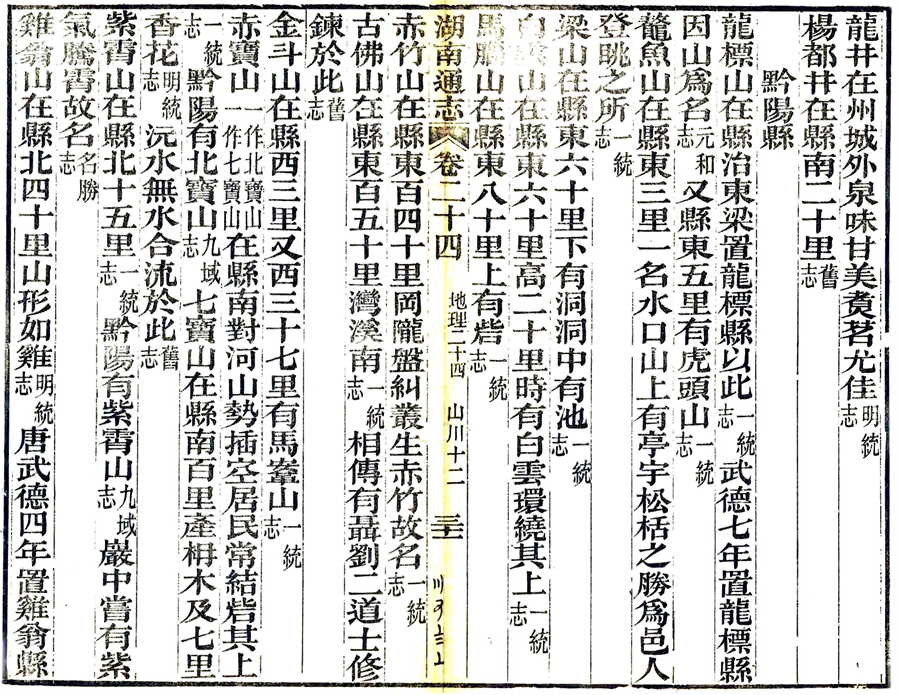 龍井在州城外泉味甘美煑茗尤佳明統志
楊都井在縣南二十里舊志
黔陽縣
龍標山在縣治東梁置龍標縣以此一統志武德七年置龍標縣
因山爲名元和志又縣東五里有虎頭山一統志
鼇魚山在縣東三里一名水口山上有亭宇松栝之勝爲邑人
登眺之所一統志
梁山在縣東六十里下有洞洞中有池一統志
白雲山在縣東六十里高二十里時有白雲環繞其上一統志
馬鵬山在縣東八十里上有砦一統志
湖南通志 卷二十四 地理二十四 山川十二
赤竹山在縣東百四十里岡隴盤糾叢生赤竹故名一統志
古佛山在縣東百五十里灣溪南一統志相傳有聶劉二道士修
鍊於此舊志
金斗山在縣西三里又西三十七里有馬鞌山一統志
赤寶山一作北寶山一作七寶山在縣南對河山勢插空居民常結砦其上
一統志黔陽有北寶山九域志七寶山在縣南百里產枏木及七里
香花明統志沅水無水合流於此舊志
紫霄山在縣北十五里一統志黔陽有紫霄山九域志巖中嘗有紫
氣騰霄故名名勝志
雞翁山在縣北四十里山形如雞明統志唐武德四年置雞翁縣